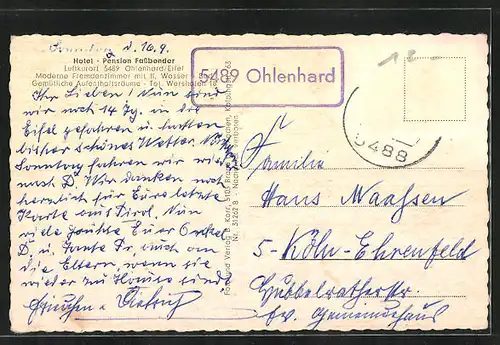 Sonntag d. 16.9.
Hotel - Pension Faßbender
Luftkurort 5489 Ohlenhard/Eifel
Moderne Fremdenzimmer mit fl. Wasser
Gemütliche Aufenthaltsräume - Tel. Wershofen
Ihr Lieben! Nun sind
wir noch 14 Tg. in die
Eifel gefahren u. hatten
bisher schönes Wetter.
Sonntag fahren wir wieder
nach D. Wir danken noch
herzlich für Eure letzte
Karte aus Tirol. Nun
viele Grüße Euer Onkel
D. u. Tante Dr. auch an
die Eltern, wenn sie
wieder zu Hause sind
5489 Ohlenhard
5488
Familie
Hans Maassen
5-Köln-Ehrenfeld
Hubbelratherstr.
Ev. Gemeindehaus